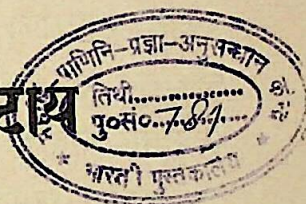 पाणिनि-प्रज्ञा-अनुसन्धान
तिथी..................
पु०सं०..7.81....
* भारती पुस्तकालय *